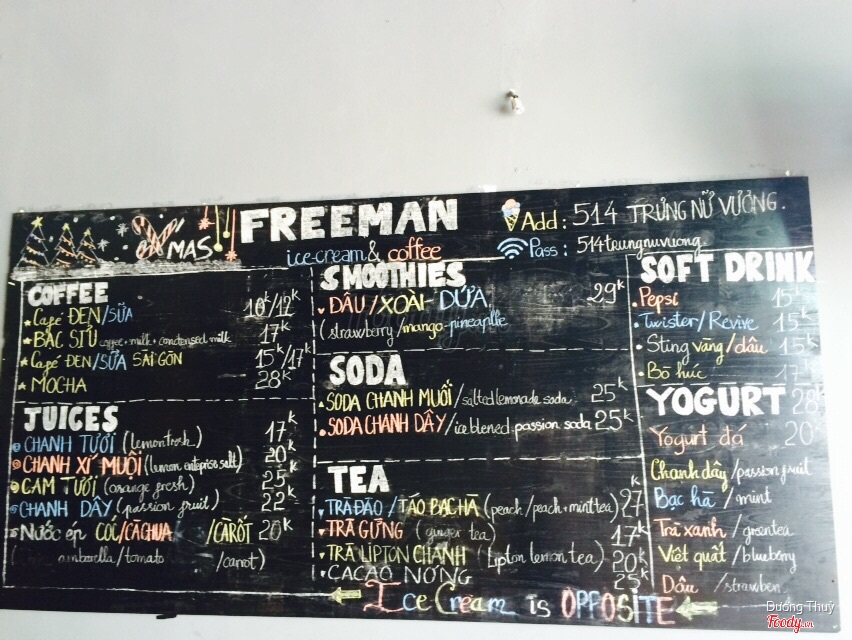 XMAS
FREEMAN
ice-cream & coffee
Add: 514 TRƯNG NỮ VƯƠNG.
Pass: 514trungnuvuong.
COFFEE
Café ĐEN/SỮA 10k/12k
BẠC SỈU coffee + milk + condensed milk 17k
Café ĐEN/SỮA SÀI GÒN 15k/17k
MOCHA 28k
JUICES
CHANH TƯƠI (lemon fresh) 17k
CHANH XÍ MUỘI (lemon salt) 20k
CAM TƯƠI (orange fresh) 25k
CHANH DÂY (passion fruit) 22k
Nước ép CỐC/CÀ CHUA /CÀ RỐT 20k
(ambarella/tomato /carrot)
SMOOTHIES
DÂU/XOÀI-DỨA 29k
(strawberry/mango-pineaplle
SODA
SODA CHANH MUỐI/salted lemonade soda 25k
SODA CHANH DÂY/ice blened passion soda 25k
TEA
TRÀ ĐÀO/TÁO BẠC HÀ (peach/peach+mint tea) 27k
TRÀ GỪNG (ginger tea) 17k
TRÀ LIPTON CHANH (Lipton lemon tea) 20k
CACAO NÓNG 25k
SOFT DRINK
Pepsi 15k
Twister/Revive 15k
Sting vàng/dâu 15k
Bò húc 17
YOGURT 28k
Yogurt đá 20k
Chanh dây/passion fruit
Bạc hà/mint
Trà xanh/greentea
Việt quất/blueberry
Dâu/strawberr
Ice Cream is OPPOSITE
Dương Thuý
Foody.vn